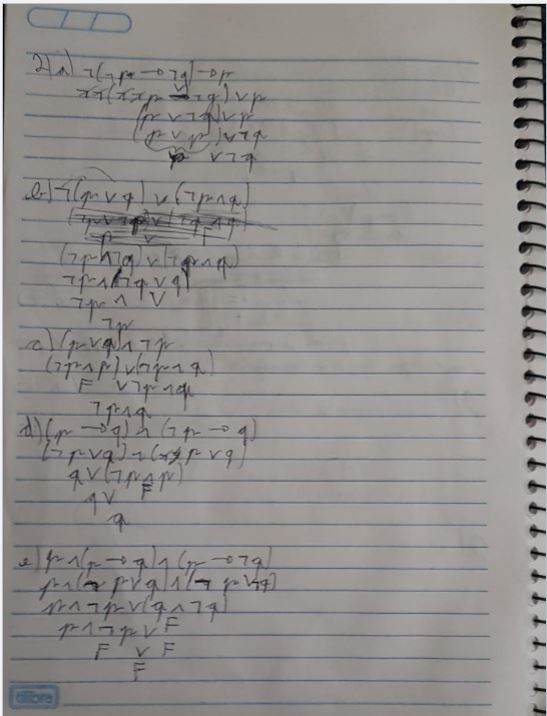 2) a) ¬(¬p → ¬q) → p
(p ∨ ¬q) ∨ p
(p ∨ p) ∨ ¬q
p ∨ ¬q
b) ¬(p ∨ q) ∨ (¬p ∧ q)
(¬p ∧ ¬q) ∨ (¬p ∧ q)
¬p ∧ (¬q ∨ q)
¬p ∧ V
¬p
c) (p ∨ q) ∧ ¬p
(¬p ∧ p) ∨ (¬p ∧ q)
F ∨ ¬p ∧ q
¬p ∧ q
d) (p → q) ∧ (¬p → q)
(¬p ∨ q) ∧ (p ∨ q)
q ∨ (¬p ∧ p)
q ∨ F
q
e) p ∧ (p → q) ∧ (p → ¬q)
p ∧ (¬p ∨ q) ∧ (¬p ∨ ¬q)
p ∧ ¬p ∨ (q ∧ ¬q)
p ∧ ¬p ∨ F
F ∨ F
F
tilibra